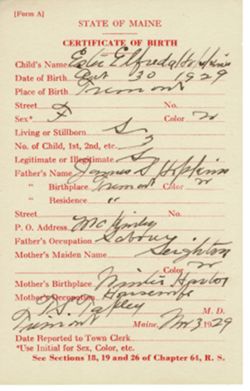 [Form A]
STATE OF MAINE
CERTIFICATE OF BIRTH
Child's Name Elfreda Hopkins
Date of Birth Oct 30 1929
Place of Birth Tremont
Street No.
Sex* F Color W
Living or Stillborn
No. of Child, 1st, 2nd, etc. 3
Legitimate or Illegitimate
Father's Name James S Hopkins
" Birthplace Tremont Color W
" Residence "
Street No.
P. O. Address McKinley
Father's Occupation Laborer
Mother's Maiden Name Leighton
Color W
Mother's Birthplace Winter Harbor
Mother's Occupation Housewife
Tapley M. D.
Tremont Maine, Nov 3 1929
Date Reported to Town Clerk
*Use Initial for Sex, Color, etc.
See Sections 18, 19 and 26 of Chapter 64, R. S.